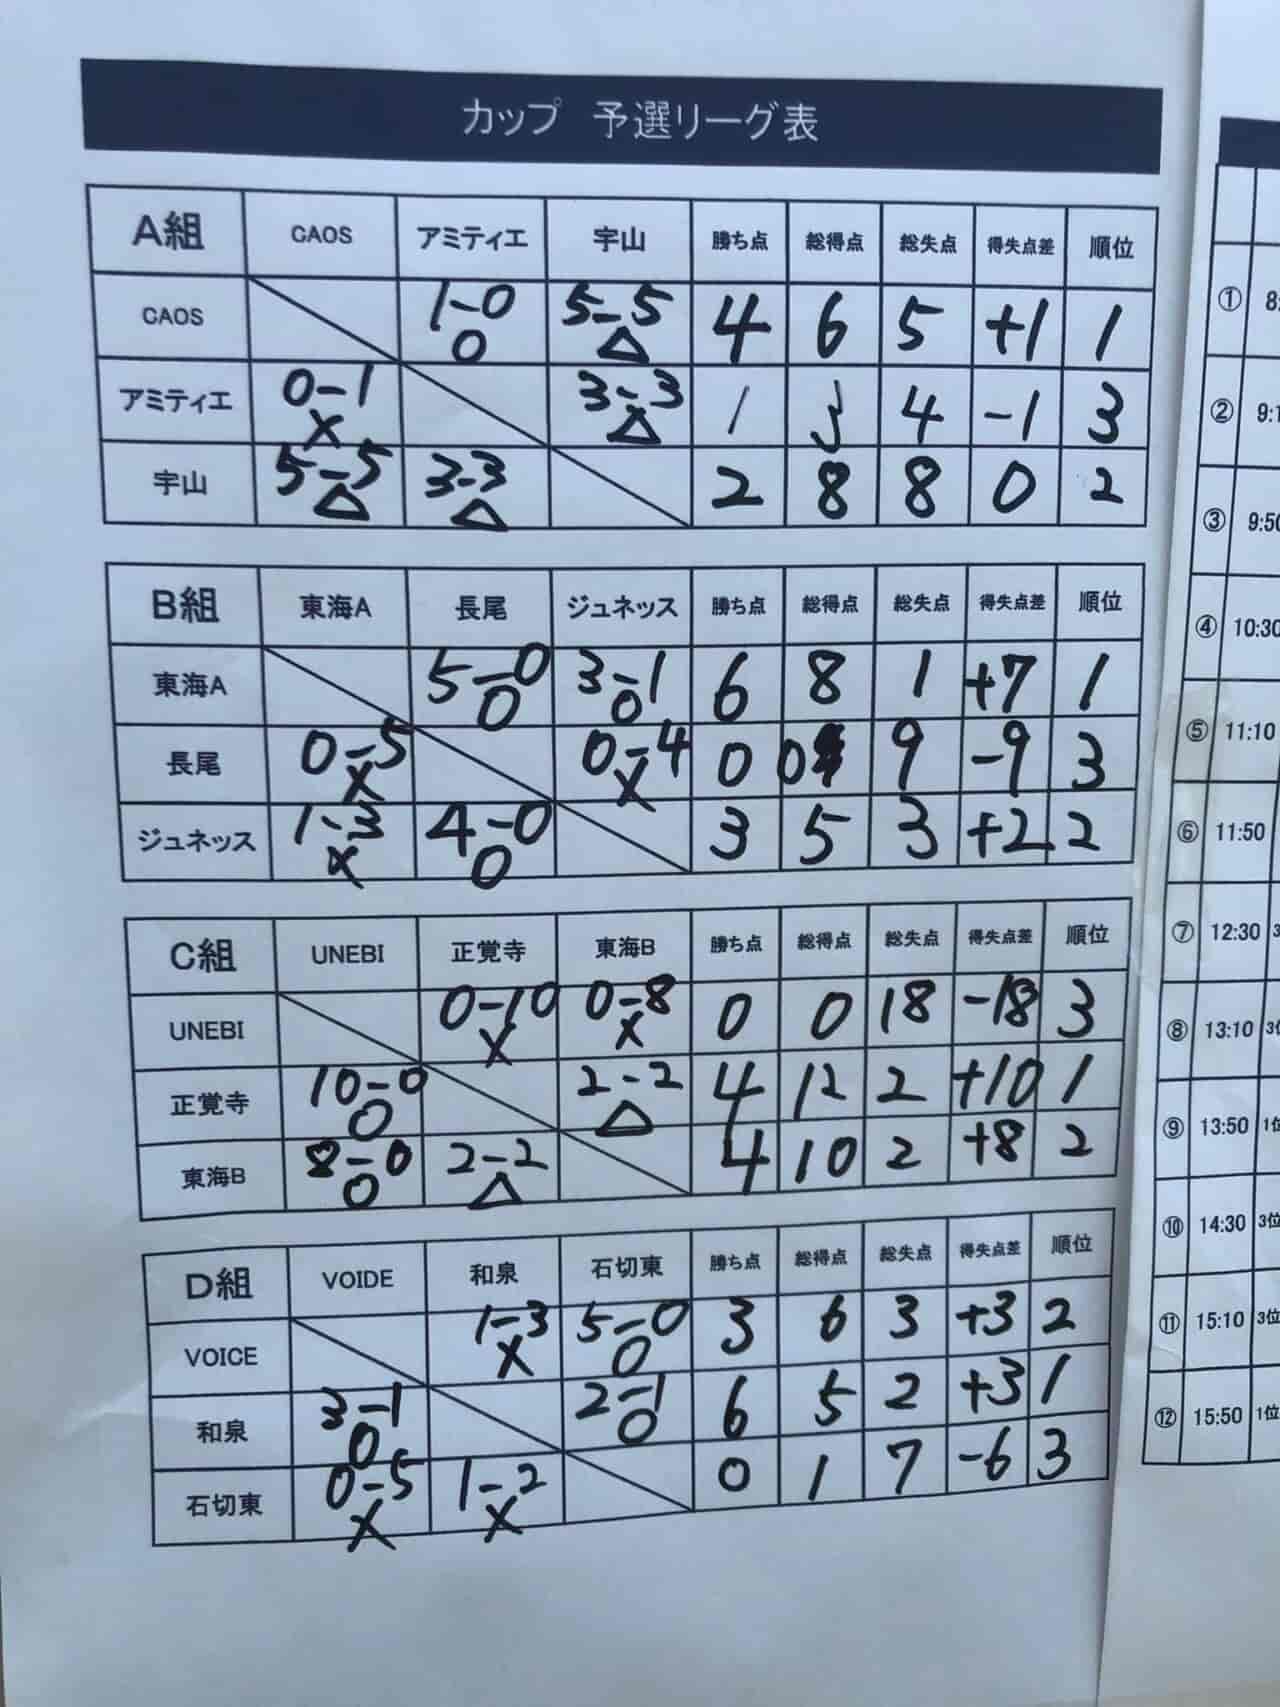 カップ 予選リーグ表
A組 CAOS アミティエ 宇山 勝ち点 総得点 総失点 得失点差 順位
CAOS 1-0 ○ 5-5 △ 4 6 5 +1 1
アミティエ 0-1 × 3-3 △ 1 3 4 -1 3
宇山 5-5 △ 3-3 △ 2 8 8 0 2
B組 東海A 長尾 ジュネッス 勝ち点 総得点 総失点 得失点差 順位
東海A 5-0 ○ 3-1 ○ 6 8 1 +7 1
長尾 0-5 × 0-4 × 0 0 9 -9 3
ジュネッス 1-3 × 4-0 ○ 3 5 3 +2 2
C組 UNEBI 正覚寺 東海B 勝ち点 総得点 総失点 得失点差 順位
UNEBI 0-10 × 0-8 × 0 0 18 -18 3
正覚寺 10-0 ○ 2-2 △ 4 12 2 +10 1
東海B 8-0 ○ 2-2 △ 4 10 2 +8 2
D組 VOIDE 和泉 石切東 勝ち点 総得点 総失点 得失点差 順位
VOICE 1-3 × 5-0 ○ 3 6 3 +3 2
和泉 3-1 ○ 2-1 ○ 6 5 2 +3 1
石切東 0-5 × 1-2 × 0 1 7 -6 3
① 8:
② 9:1
③ 9:50
④ 10:30
⑤ 11:10
⑥ 11:50
⑦ 12:30 3
⑧ 13:10 3位
⑨ 13:50 1位
⑩ 14:30 3位
⑪ 15:10 3位
⑫ 15:50 1位